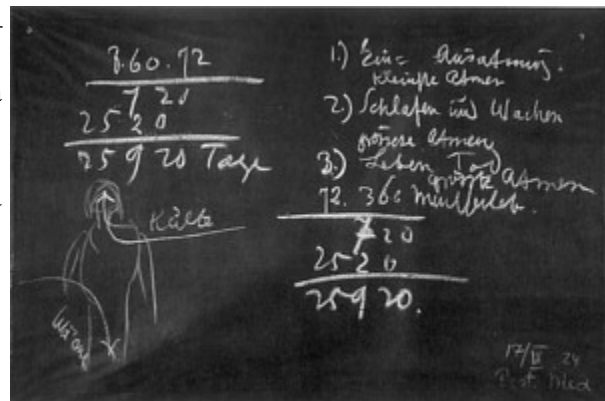 3.60.72
7 20
25 2 0
25 9 20 Tage
Kälte
Wärme
1.) Eine Ausatmung.
kleinste Atmen
2.) Schlafen und Wachen
grösse Atmen
3.) Leben Tod
grösste Atmen
72. 360
7 20
25 2 0
25 9 20.
17/II 24
Med